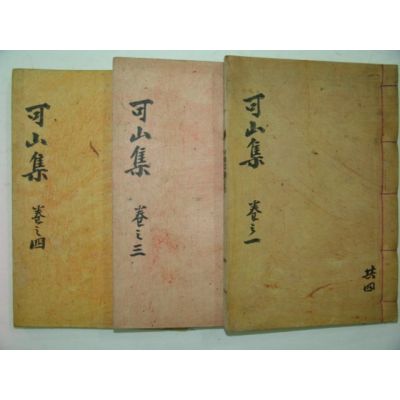 可山集
卷之一
共四
可山集
卷之三
可山集
卷之四